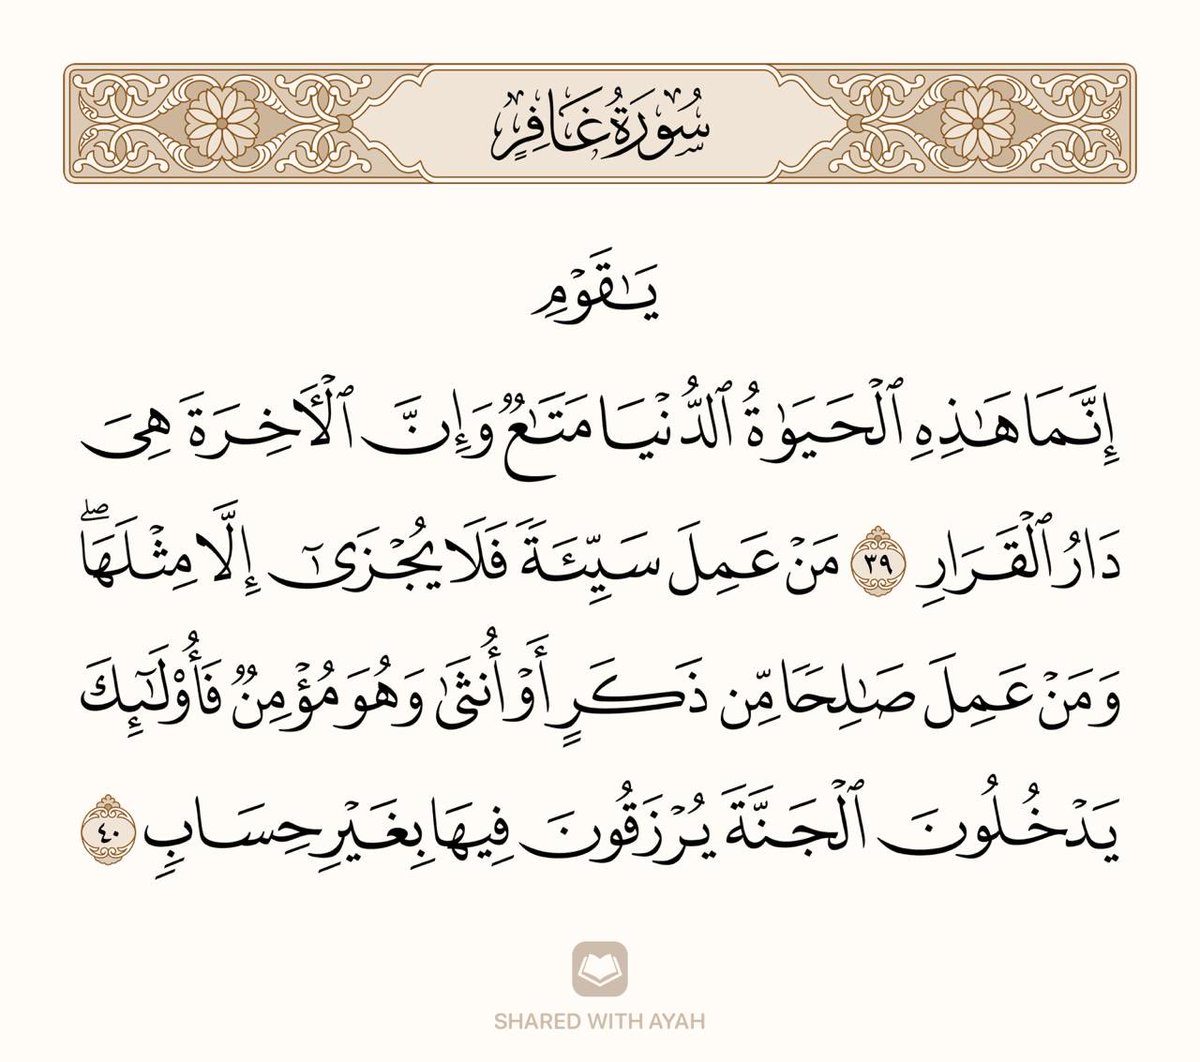 سُورَةُ غَافِرٍ
يَـٰقَوۡمِ
إِنَّمَا هَـٰذِهِ ٱلۡحَيَوٰةُ ٱلدُّنۡيَا مَتَـٰعࣱ وَإِنَّ ٱلۡأَخِرَةَ هِیَ
دَارُ ٱلۡقَرَارِ ٣٩ مَنۡ عَمِلَ سَيِّئَةࣰ فَلَا يُجۡزَىٰۤ إِلَّا مِثۡلَهَاۖ
وَمَنۡ عَمِلَ صَـٰلِحࣰا مِّن ذَكَرٍ أَوۡ أُنثَىٰ وَهُوَ مُؤۡمِنࣱ فَأُو۟لَـٰۤئِكَ
يَدۡخُلُونَ ٱلۡجَنَّةَ يُرۡزَقُونَ فِيهَا بِغَيۡرِ حِسَابࣲ ٤٠
SHARED WITH AYAH